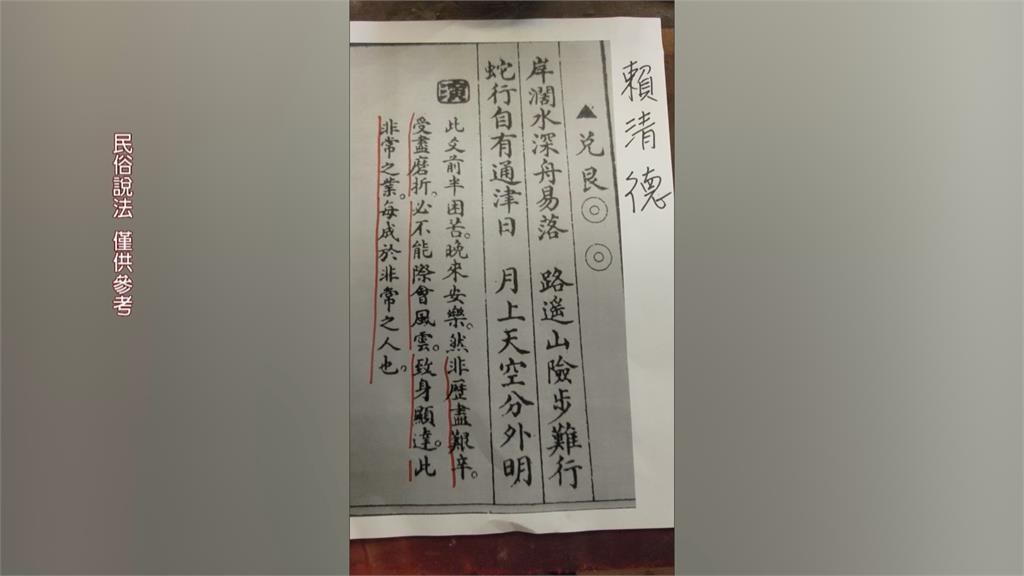 賴清德
▲兑艮◎◎
岸濶水深舟易落 路遥山險步難行
蛇行自有通津日 月上天空分外明
演
此爻前半困苦。晚來安樂。然非歷盡艱辛。
受盡磨折。必不能際會風雲。致身顯達。此
非常之業。每成於非常之人也。
民俗說法 僅供參考